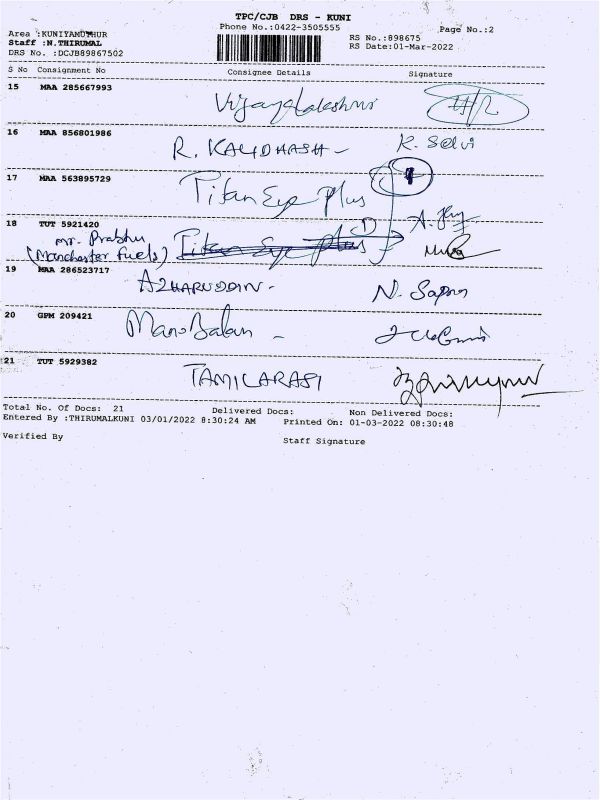 TPC/CJB DRS - KUNI
Phone No.:0422-3505555
Page No.:2
Area :KUNIYAMUTHUR
RS No.:898675
Staff :N.THIRUMAL
RS Date:01-Mar-2022
DRS No. :DCJB89867502
S No Consignment No Consignee Details Signature
15 MAA 285667993 Vijayalakshmi
16 MAA 856801986 R. KALIDHASH - K. Selvi
17 MAA 563895729 Titan Eye Plus
18 TUT 5921420
Mr. Prabhu Titan Eye Plus
(Manchester Fuels)
19 MAA 286523717 AZHARUDDIN -
20 GPM 209421 ManoBalan -
21 TUT 5929382 TAMILARASI
Total No. Of Docs: 21 Delivered Docs: Non Delivered Docs:
Entered By :THIRUMALKUNI 03/01/2022 8:30:24 AM Printed On: 01-03-2022 08:30:48
Verified By Staff Signature